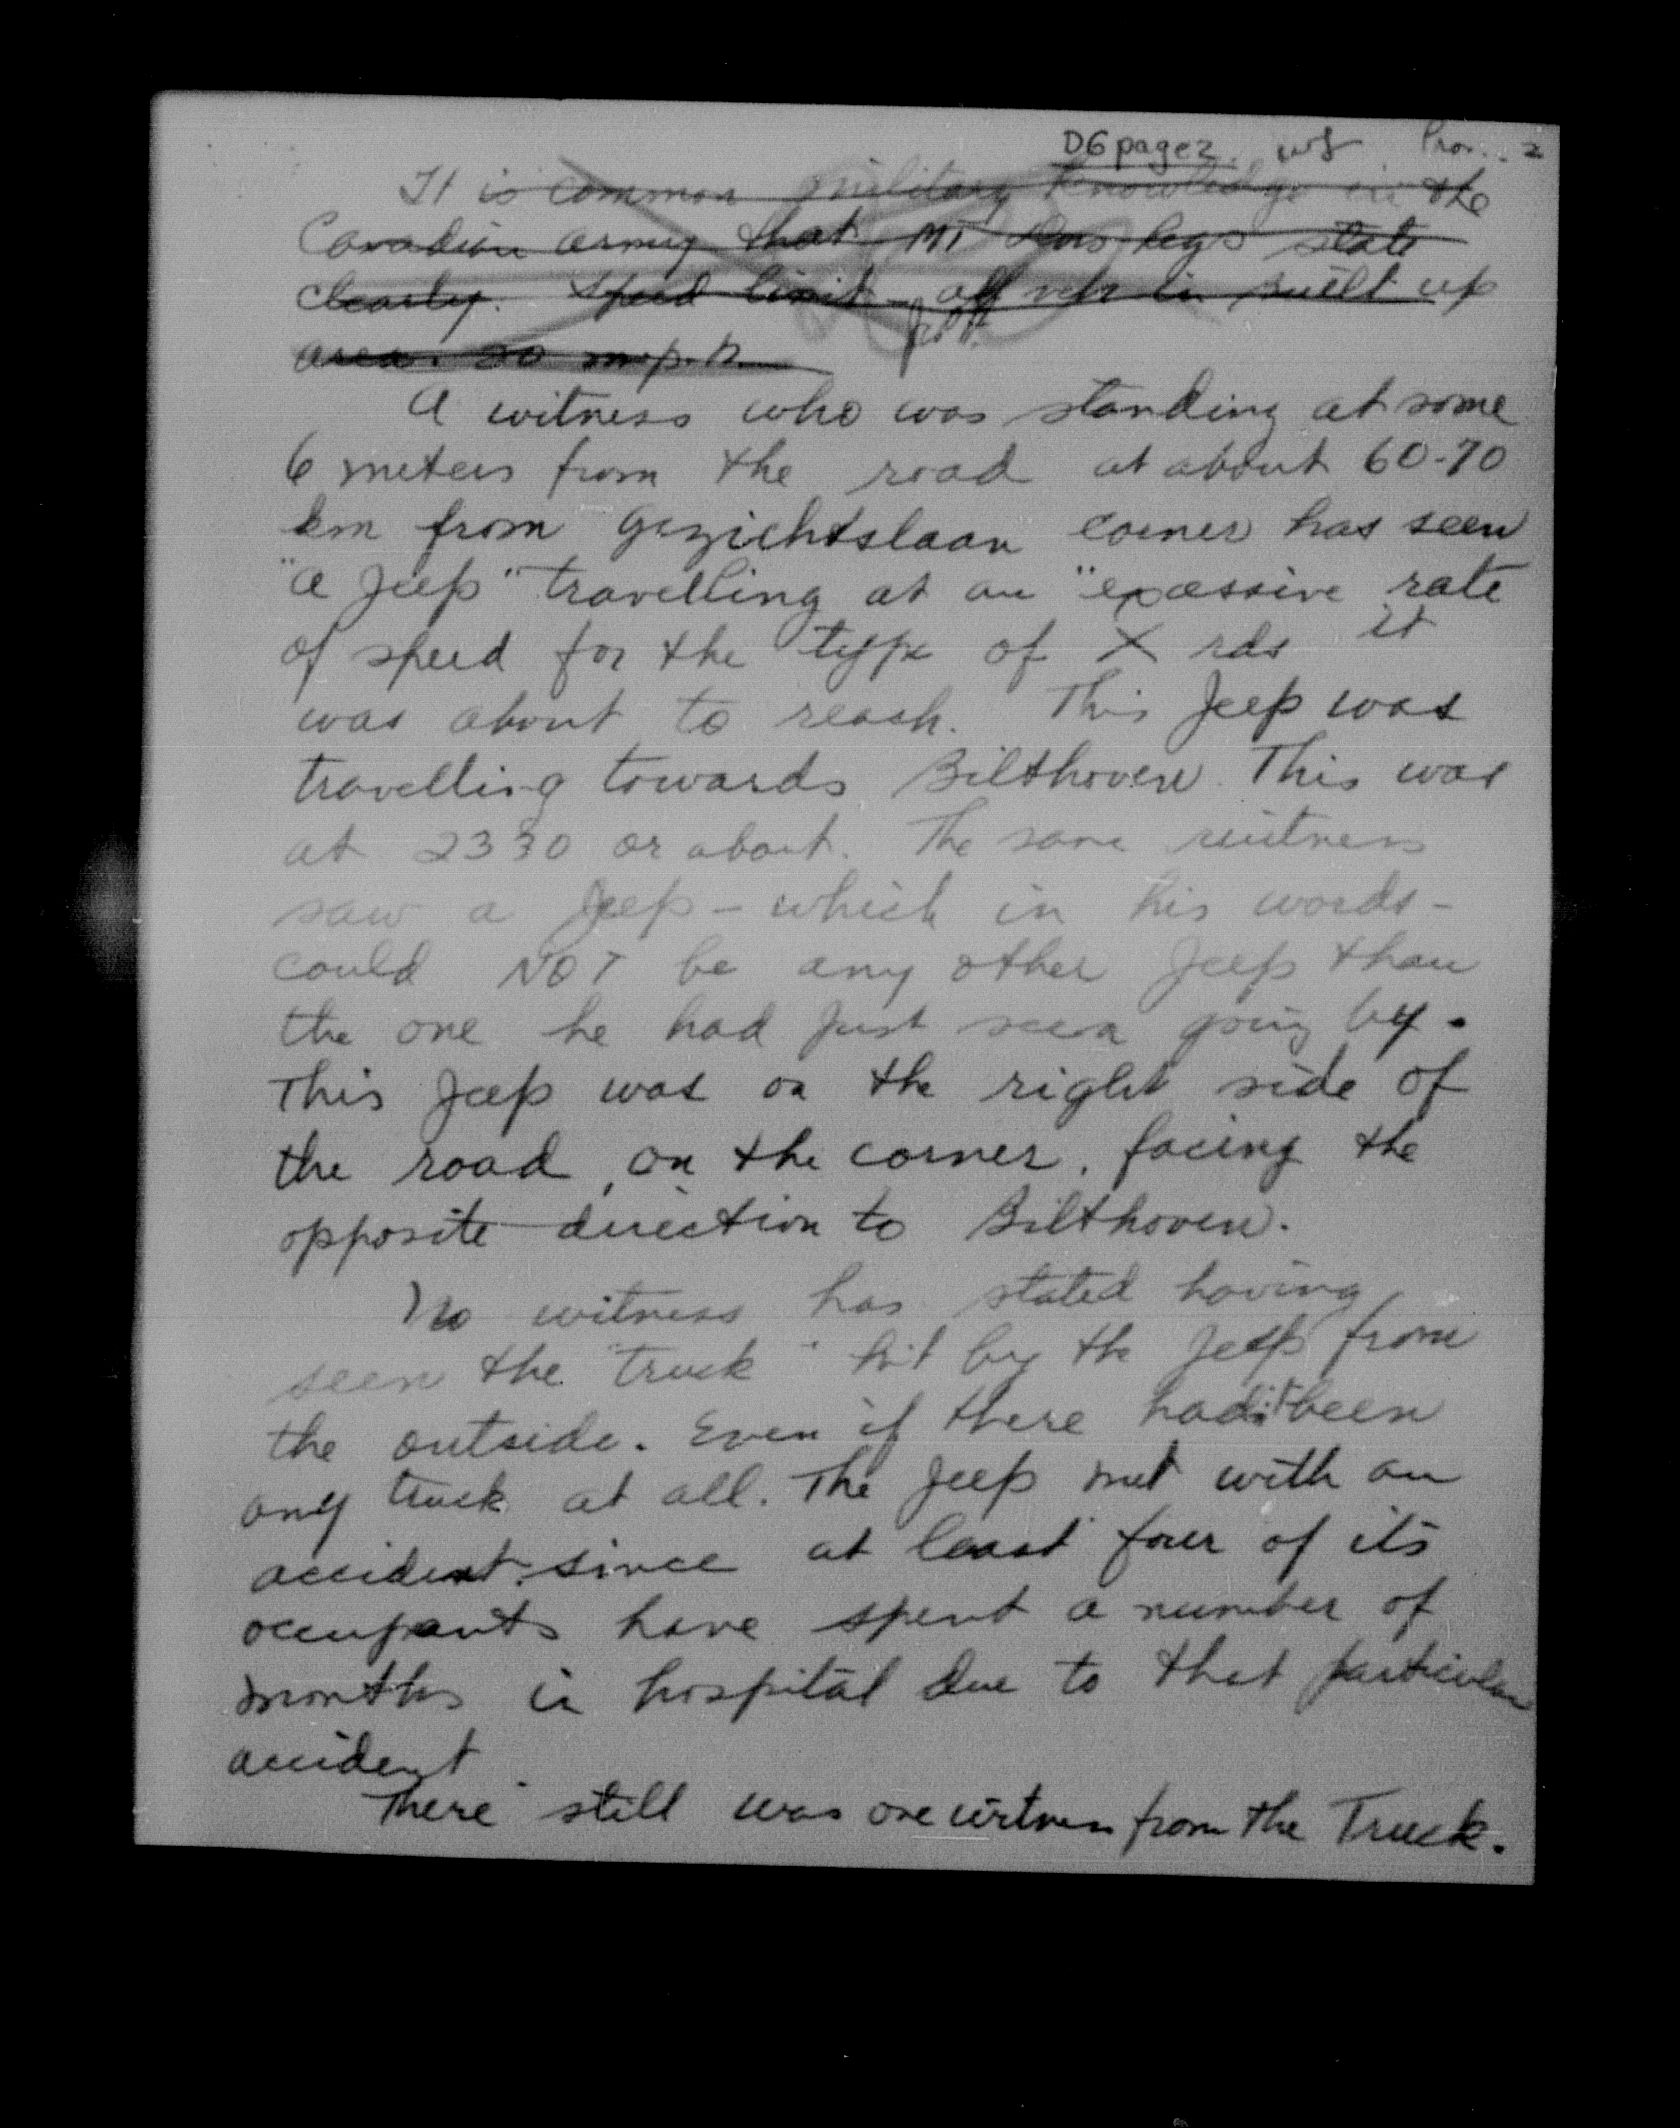 D6 page 2.
It is common military knowledge in the
Canadian army that MT legs state
clearly. Speed limit - all veh in built up
area. 20 m.p.h.
A witness who was standing at some
6 meters from the road at about 60-70
km from Gezichtslaan corner has seen
"a Jeep" travelling at an "excessive rate
of speed for the type of X rds it
was about to reach. This Jeep was
travelling towards Bilthoven. This was
at 2330 or about. The same witness
saw a Jeep - which in his words -
could NOT be any other Jeep than
the one he had just seen going by.
This Jeep was on the right side of
the road, on the corner, facing the
opposite direction to Bilthoven.
No witness has stated having
seen the "truck" hit by the Jeep from
the outside. Even if there had it been
any truck at all. The Jeep met with an
accident since at least four of its
occupants have spent a number of
months in hospital due to that particular
accident.
There still was one witness from the Truck.